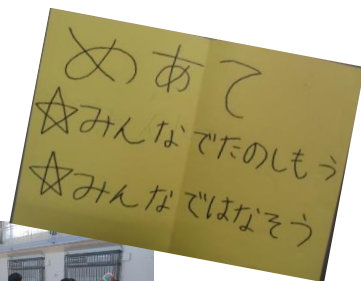 めあて
☆みんなでたのしもう
☆みんなではなそう